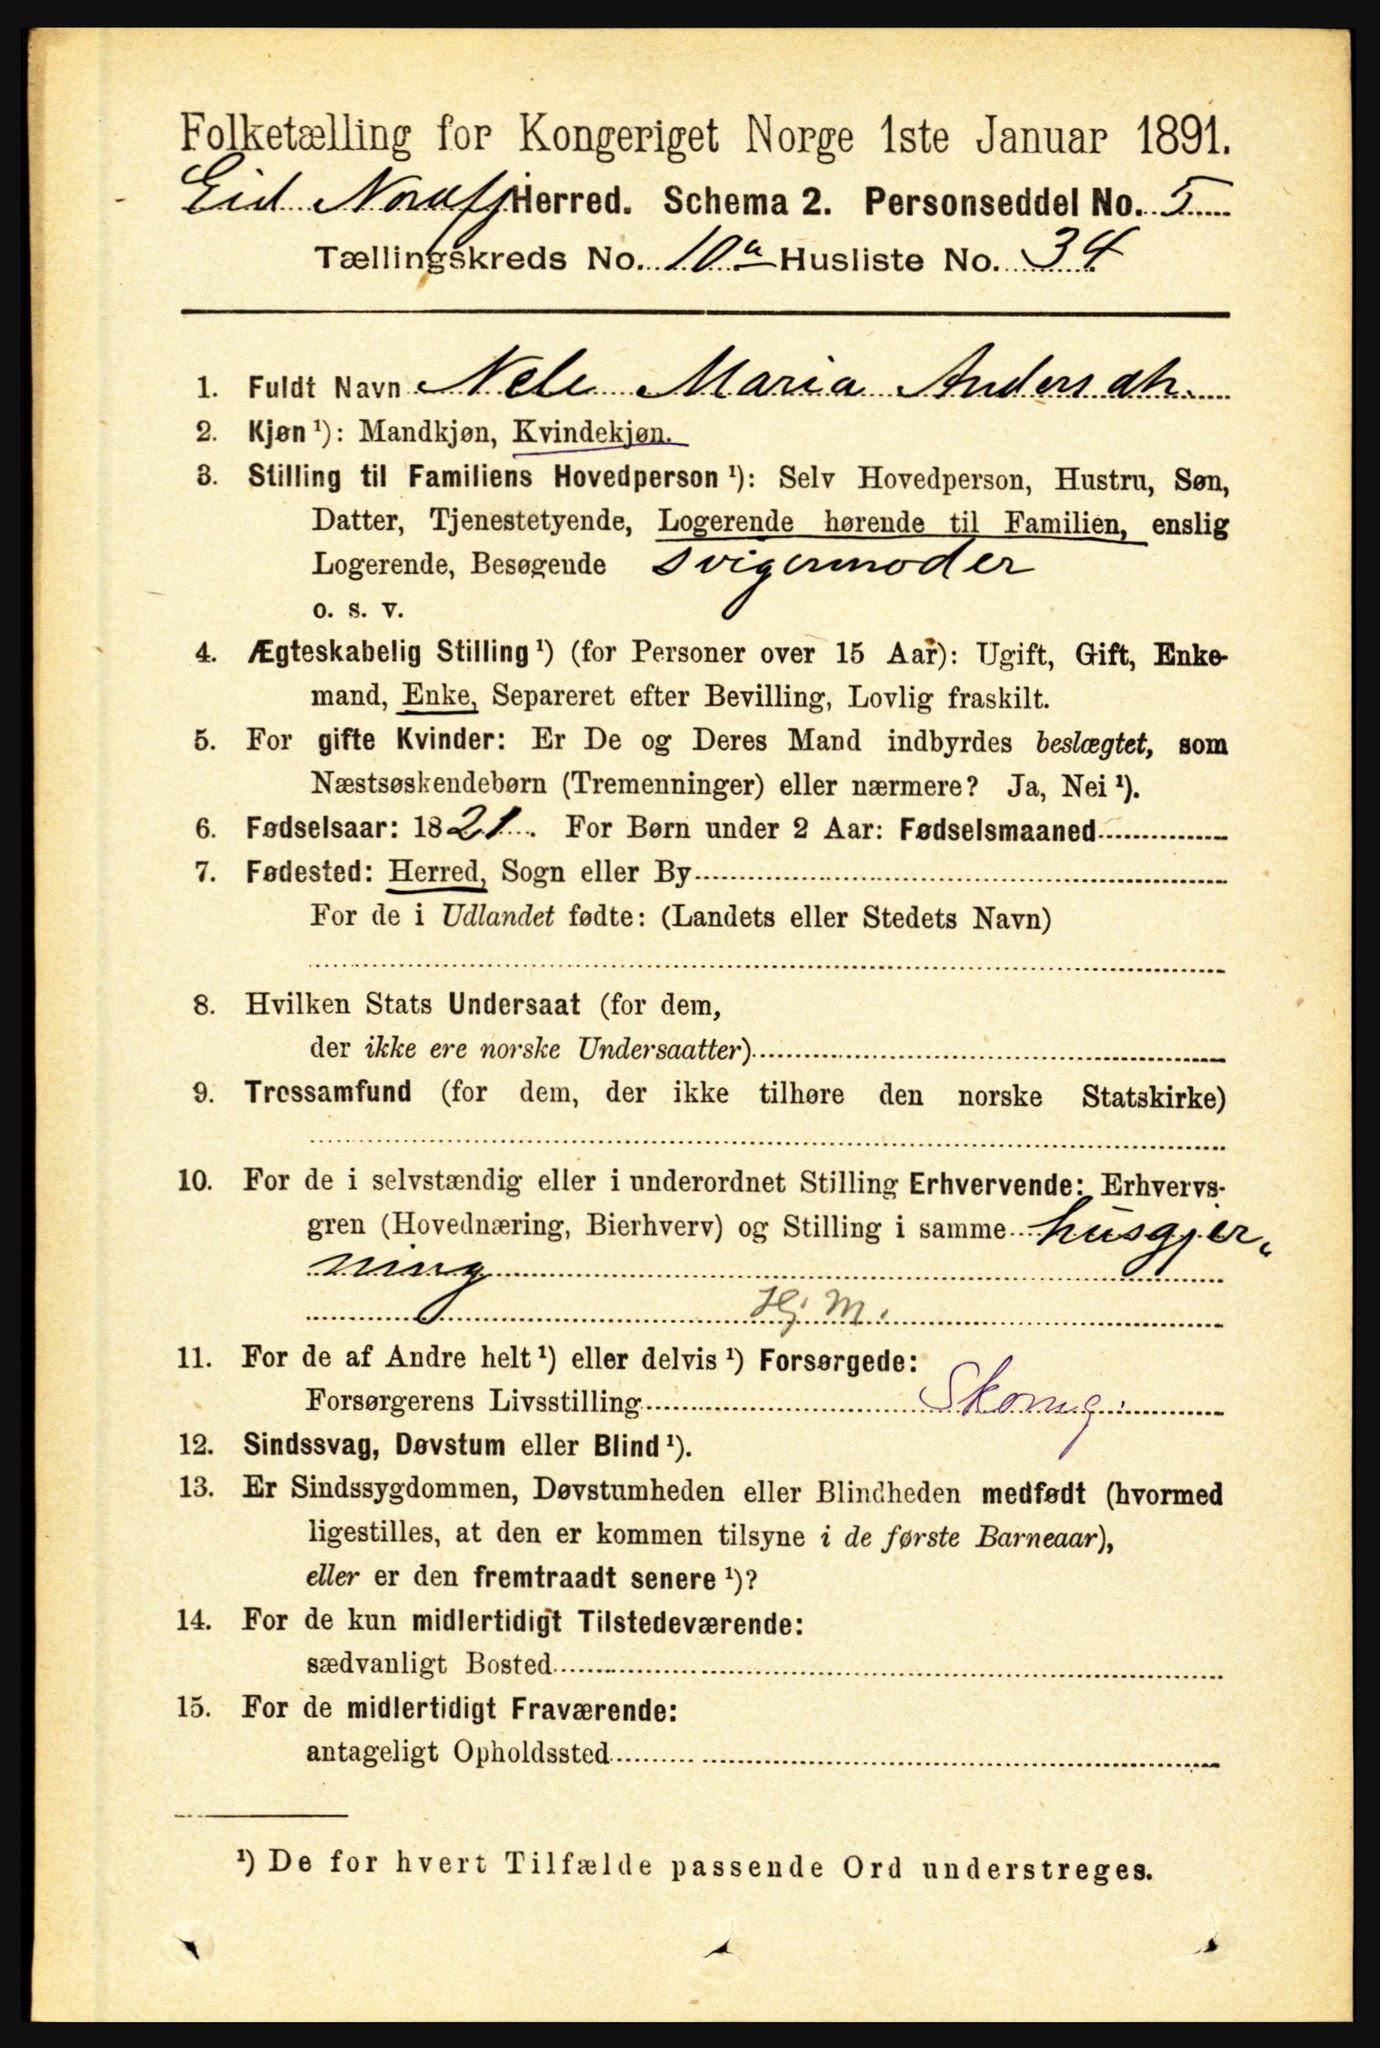 Folketælling for Kongeriget Norge 1ste Januar 1891.
Eid Nordfj Herred. Schema 2. Personseddel No. 5
Tællingskreds No. 10a Husliste No. 34
1. Fuldt Navn Nele Maria Andersdtr.
2. Kjøn ¹): Mandkjøn, Kvindekjøn.
3. Stilling til Familiens Hovedperson ¹): Selv Hovedperson, Hustru, Søn,
Datter, Tjenestetyende, Logerende hørende til Familien, enslig
Logerende, Besøgende svigermoder
o. s. v.
4. Ægteskabelig Stilling ¹) (for Personer over 15 Aar): Ugift, Gift, Enke-
mand, Enke, Separeret efter Bevilling, Lovlig fraskilt.
5. For gifte Kvinder: Er De og Deres Mand indbyrdes beslægtet, som
Næstsøskendebørn (Tremenninger) eller nærmere? Ja, Nei ¹).
6. Fødselsaar: 1821. For Børn under 2 Aar: Fødselsmaaned
7. Fødested: Herred, Sogn eller By
For de i Udlandet fødte: (Landets eller Stedets Navn)
8. Hvilken Stats Undersaat (for dem,
der ikke ere norske Undersaatter)
9. Trossamfund (for dem, der ikke tilhøre den norske Statskirke)
10. For de i selvstændig eller i underordnet Stilling Erhvervende: Erhvervs-
gren (Hovednæring, Bierhverv) og Stilling i samme husgjer-
ning
Hj. M.
11. For de af Andre helt ¹) eller delvis ¹) Forsørgede:
Forsørgerens Livsstilling
12. Sindssvag, Døvstum eller Blind ¹).
13. Er Sindssygdommen, Døvstumheden eller Blindheden medfødt (hvormed
ligestilles, at den er kommen tilsyne i de første Barneaar),
eller er den fremtraadt senere ¹)?
14. For de kun midlertidigt Tilstedeværende:
sædvanligt Bosted
15. For de midlertidigt Fraværende:
antageligt Opholdssted
¹) De for hvert Tilfælde passende Ord understreges.